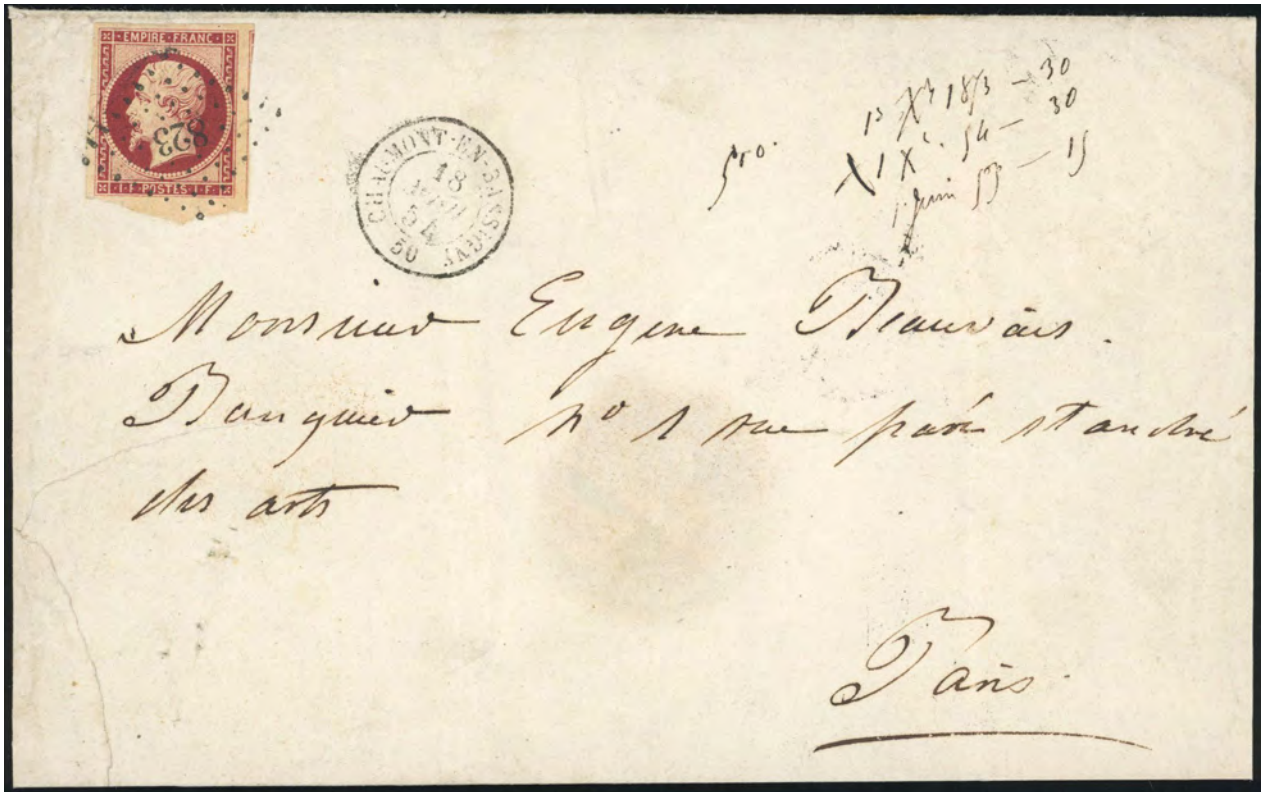 EMPIRE FRANC
823
1 F POSTES 1 F
CHAUMONT-EN-BASSIGNY
18
AVRIL
54
50
30
54 – 30
Juin 53 – 15
Monsieur Eugene Beauvais.
Banquier no 1 rue pavé st andré
des arts
Paris.